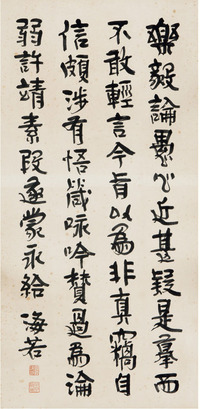 樂毅論愚心近甚疑是摹而
不敢輕言今旨以為非真竊自
信頗涉有悟箴咏吟贊過為論
弱許靖素段遂蒙永給 海若